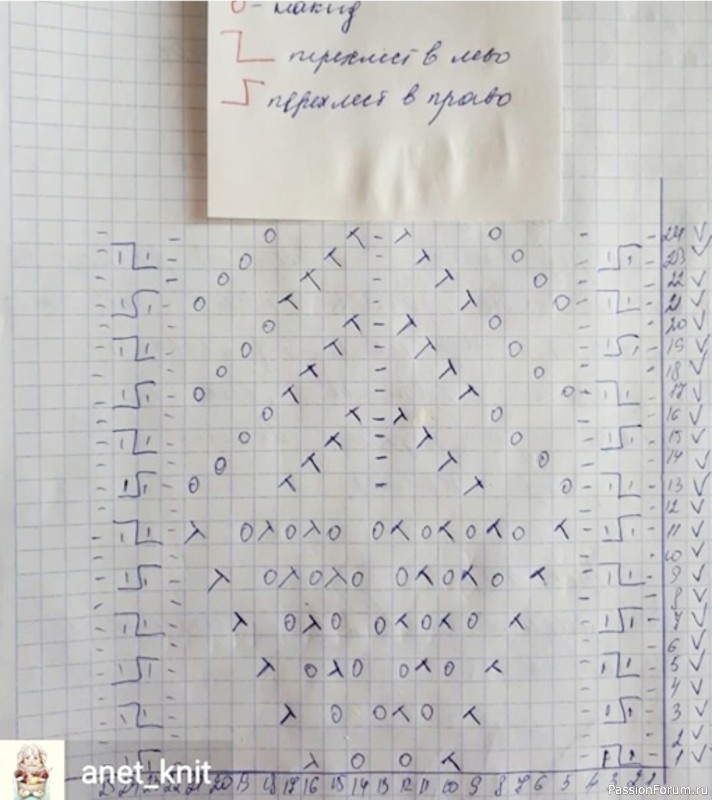 О - накид
перехлест в лево
перехлест в право
24 ✓
23 ✓
22 ✓
21 ✓
20 ✓
19 ✓
18 ✓
17 ✓
16 ✓
15 ✓
14 ✓
13 ✓
12 ✓
11 ✓
10 ✓
9 ✓
8 ✓
7 ✓
6 ✓
5 ✓
4 ✓
3 ✓
2 ✓
1 ✓
25 24 23 22 21 20 19 18 17 16 15 14 13 12 11 10 9 8 7 6 5 4 3 2 1
anet_knit
PassionForum.ru